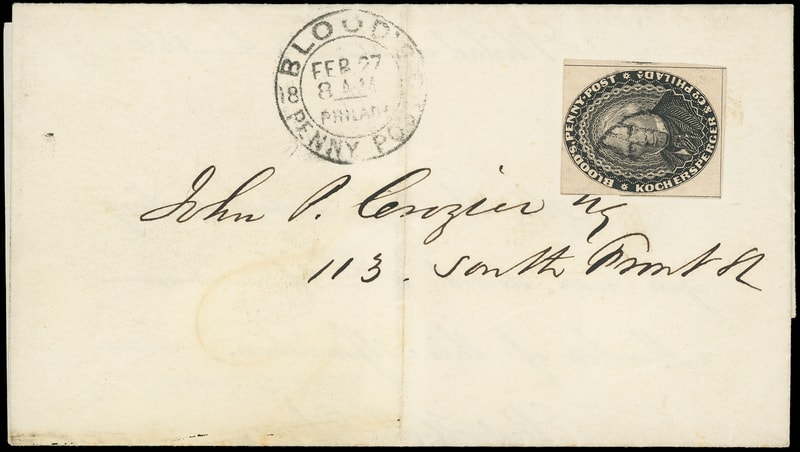 BLOOD'S
FEB 27
8 A.M
18
PHILADA
PENNY POST
BLOOD'S. PENNY-POST ★ KOCHERSPERGER & Co. PHILADa. ★
John P. Crozier Esq
113. South Front St